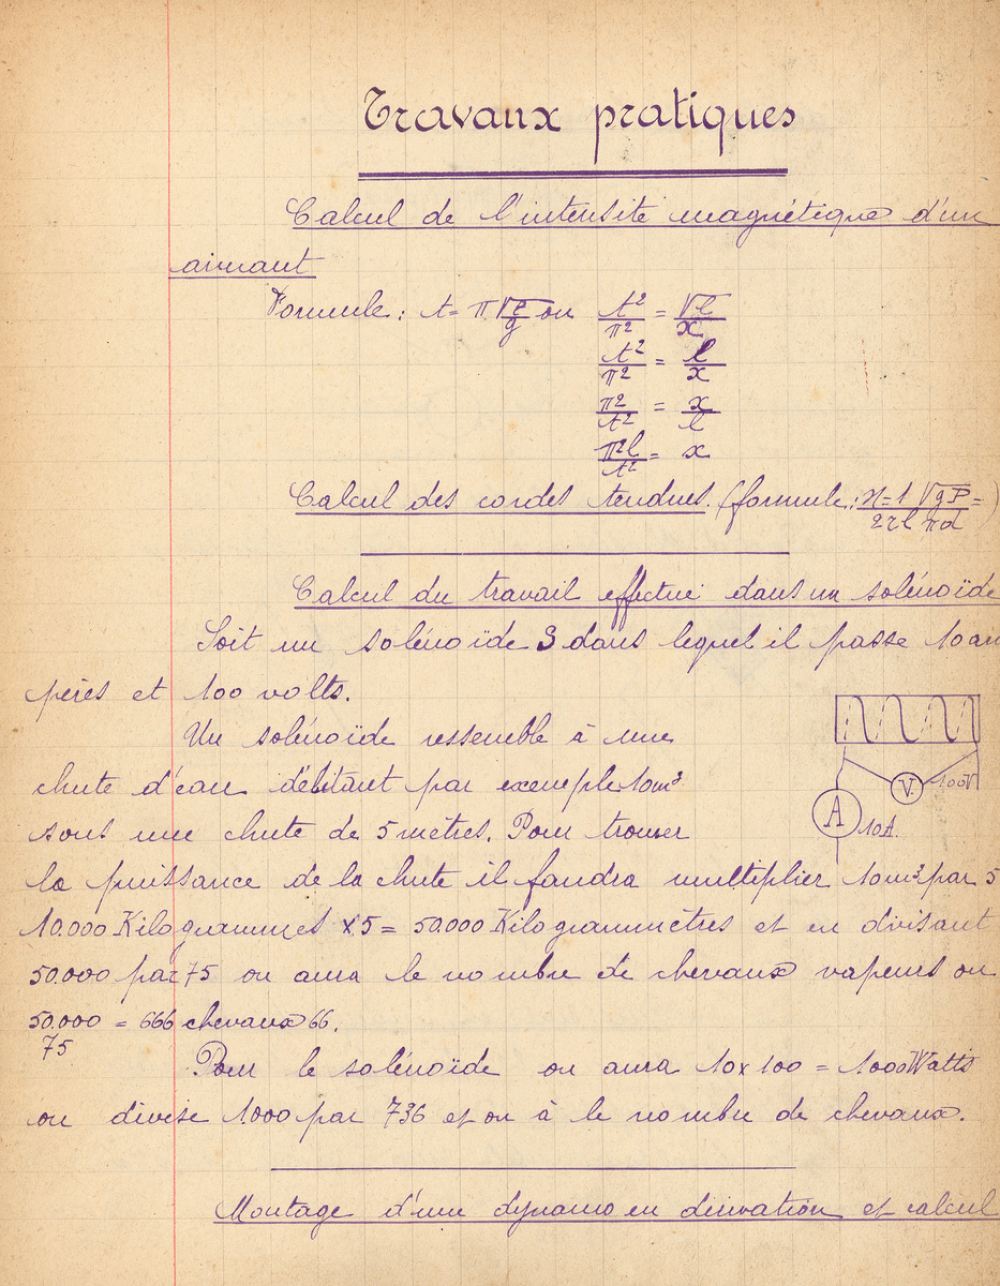 Travaux pratiques
Calcul de l'intensité magnétique d'un
aimant
Formule : t = π √l/g ou t²/π² = √l/x
t²/π² = l/x
π²/t² = x/l
π²l/t² = x
Calcul des cordes tendues. (formule : n = 1/2rl √gP/πd = )
Calcul du travail effectué dans un solénoïde
Soit un solénoïde S dans lequel il passe 10 am
pères et 100 volts.
Un solénoïde ressemble à une
chute d'eau débitant par exemple 10m³
sous une chute de 5 mètres. Pour trouver
la puissance de la chute il faudra multiplier 10m³ par 5
10.000 Kilogrammes x 5 = 50.000 Kilogrammètres et en divisant
50.000 par 75 on aura le nombre de chevaux vapeurs ou
50.000/75 = 666 chevaux 66.
Pour le solénoïde on aura 10 x 100 = 1000 Watts
on divise 1.000 par 736 et on à le nombre de chevaux.
Montage d'une dynamo en dérivation et calcul
V.
100V
A
10A.